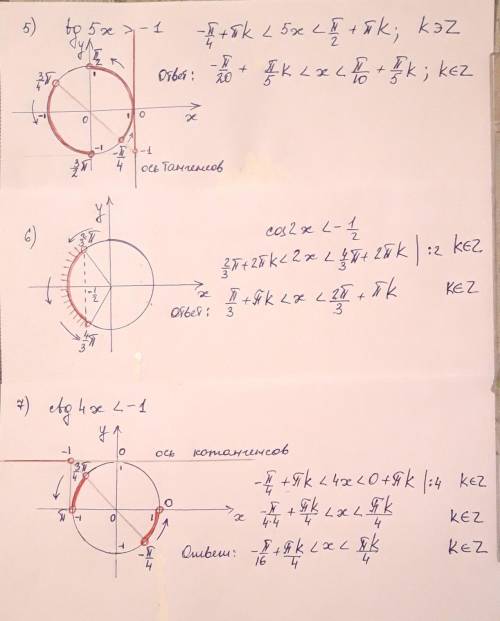 5) tg 5x > -1
-π/4 + πk < 5x < π/2 + πk; k∋Z
Ответ: -π/20 + π/5 k < x < π/10 + π/5 k; k∈Z
y
π/2
1
3/4 π
-1
0
1
0
x
-π/4
-1
-1
3/2 π
ось тангенсов
6)
y
cos2x < -1/2
2/3 π
2/3 π + 2πk < 2x < 4/3 π + 2πk | :2 k∈Z
-1/2
x
Ответ: π/3 + πk < x < 2π/3 + πk k∈Z
4/3 π
7) ctg 4x < -1
y
-1
0
ось котангенсов
3π/4
1
-π/4 + πk < 4x < 0 + πk | :4 k∈Z
π
0
1
0
x
-π/4·4 + πk/4 < x < πk/4 k∈Z
-1
-π/4
Ответ: -π/16 + πk/4 < x < πk/4 k∈Z